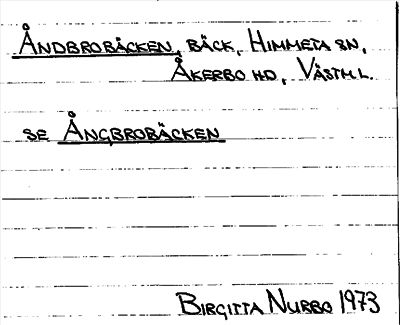 ÅNDBROBÄCKEN, BÄCK, HIMMETA SN,
ÅKERBO HD, VÄSTM L.
SE ÅNGBROBÄCKEN
BIRGITTA NURBO 1973